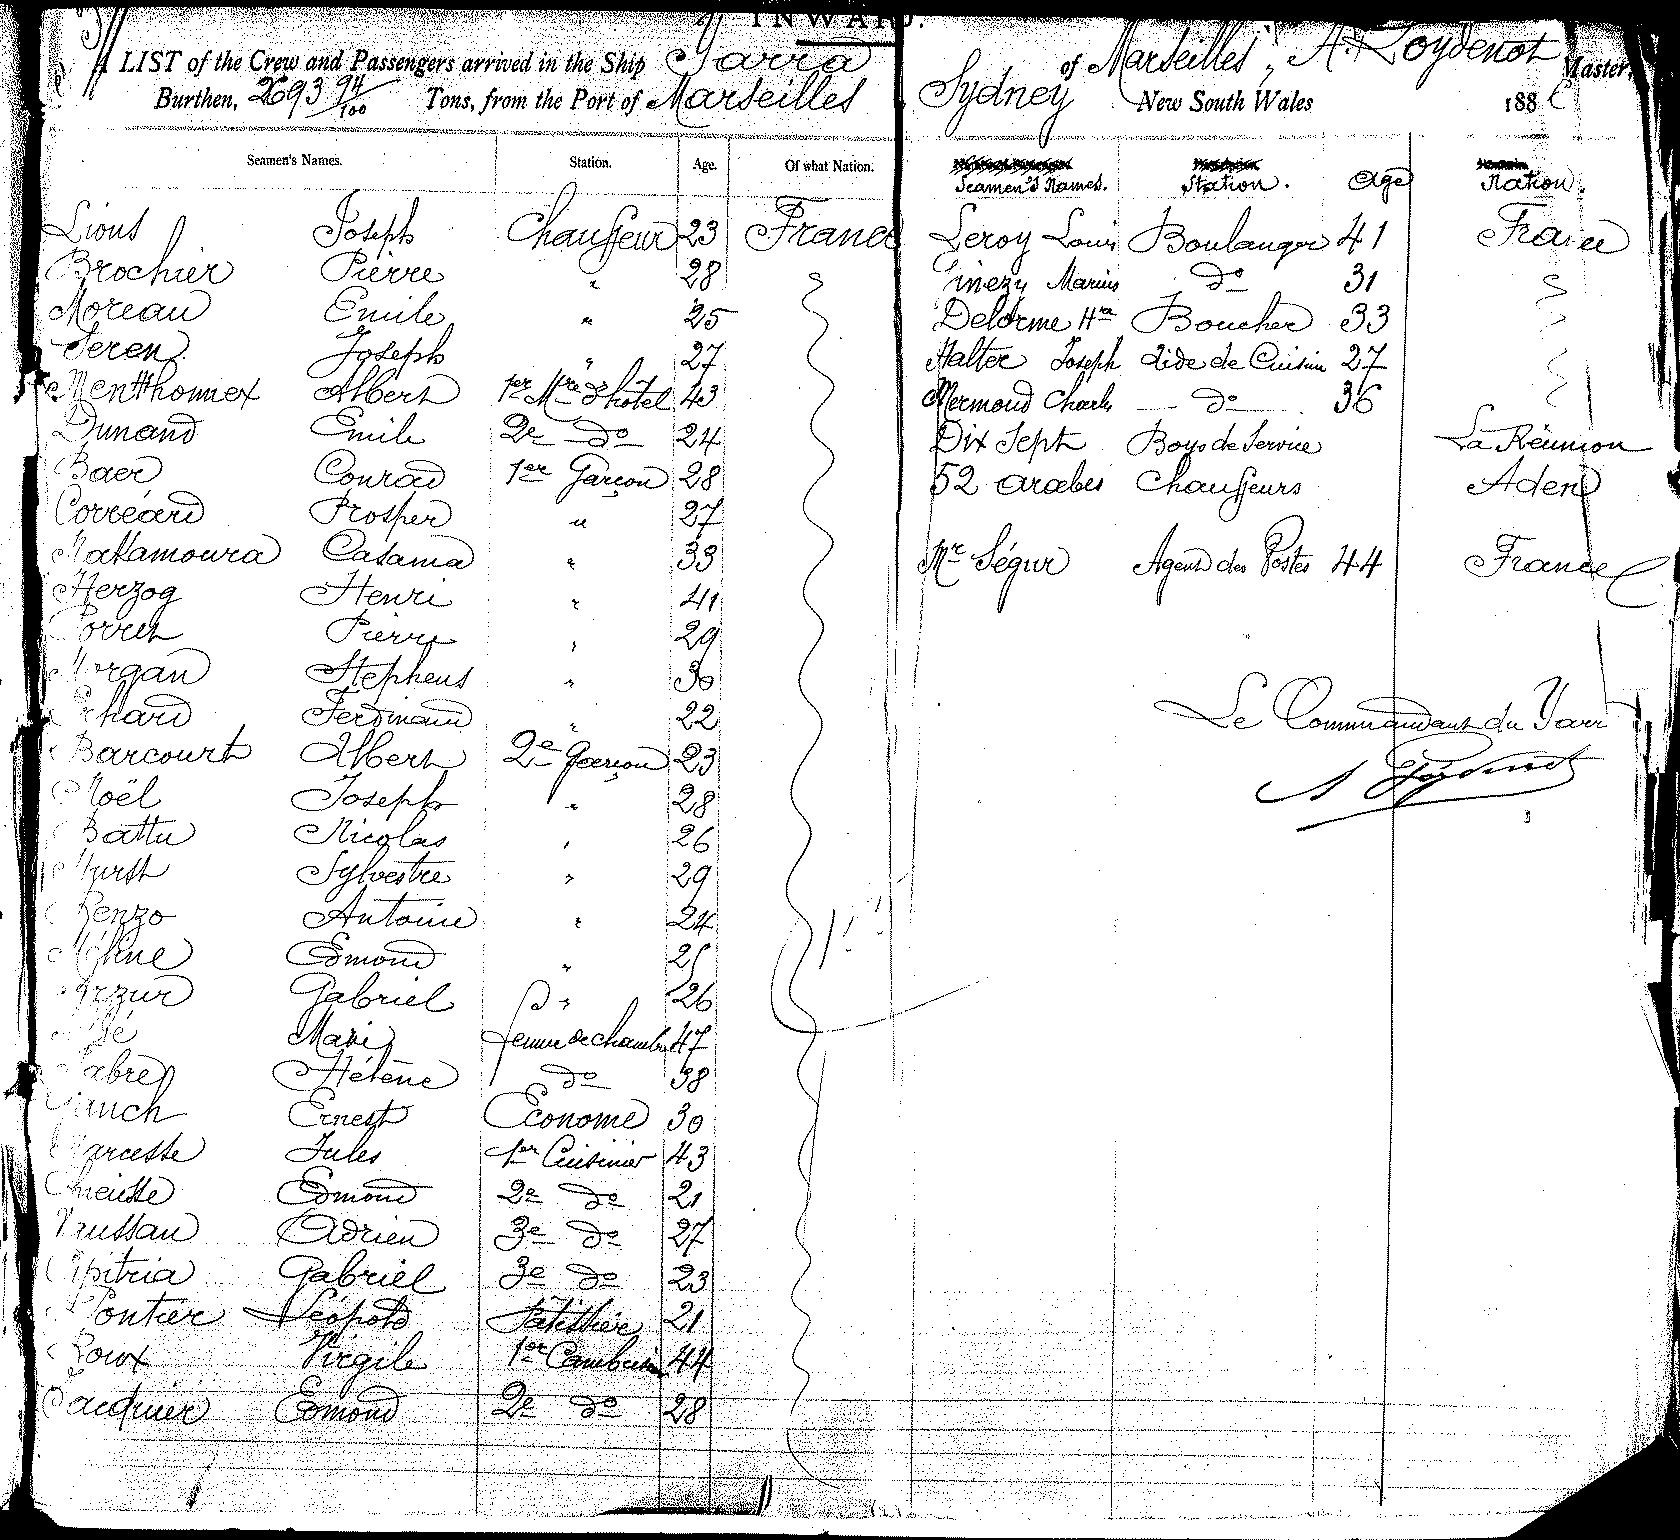 INWARD.
LIST of the Crew and Passengers arrived in the Ship Yarra of Marseilles, A. Poydenot Master,
Burthen, 2693 94/100 Tons, from the Port of Marseilles Sydney New South Wales 188
Seamen's Names. Station. Age. Of what Nation.
Lions Joseph Chauffeur 23 France
Brochier Pierre " 28
Moreau Emile " 25
Seren Joseph " 27
Menthonnex Albert 1er Mre d'hôtel 43
Dunand Emile 2e do 24
Baer Conrad 1er Garçon 28
Corréard Prosper " 27
Nakamoura Casama " 33
Herzog Henri " 41
Porret Pierre " 29
Morgan Stephens " 30
Ferdinand " 22
Barcourt Albert 2e Garçon 23
Noël Joseph " 28
Battu Nicolas " 26
Sylvestre " 29
Renzo Antoine " 24
Edmond "
Gabriel " 26
Marie femme de chambre 47
Fabre Hélène do 38
Ernest Econome 30
Jules 1er Cuisinier 43
Edmond 2e do 21
Adrien 3e do 27
Gabriel 3e do 23
Pontier Léopold Patissier 21
Roux Virgile 1er Cambusier 44
Edmond 2e do 28
Seamen's Names. Station. Age Nation.
Leroy Louis Boulanger 41 France
Marius do 31
Delorme Hri Boucher 33
Halter Joseph Aide de Cuisine 27
Mermoud Charles do 36
Dix Sept Boys de Service La Réunion
52 arabes Chauffeurs Aden
Mr Ségur Agent des Postes 44 France
Le Commandant du Yarra
A Poydenot